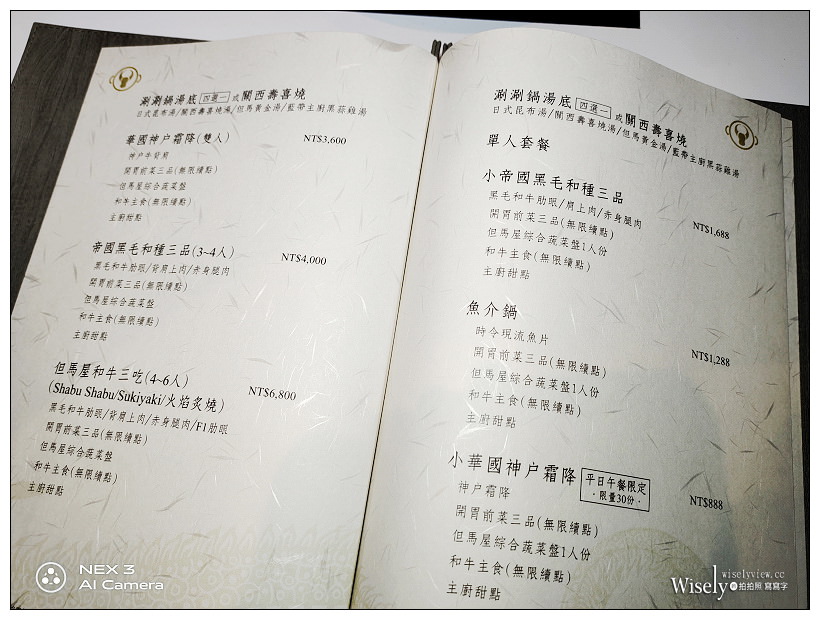 涮涮鍋湯底 四選一 或 關西壽喜燒
日式昆布湯/關西壽喜燒湯/但馬黃金湯/藍帶主廚黑蒜雞湯
華國神户霜降(雙人) NT$3,600
神户牛背肩
開胃前菜三品(無限續點)
但馬屋綜合蔬菜盤
和牛主食(無限續點)
主廚甜點
帝國黑毛和種三品(3~4人) NT$4,000
黑毛和牛肋眼/背肩上肉/赤身腿肉
開胃前菜三品(無限續點)
但馬屋綜合蔬菜盤
和牛主食(無限續點)
主廚甜點
但馬屋和牛三吃(4~6人) NT$6,800
(Shabu Shabu/Sukiyaki/火焰炙燒)
黑毛和牛肋眼/背肩上肉/赤身腿肉/F1肋眼
開胃前菜三品(無限續點)
但馬屋綜合蔬菜盤
和牛主食(無限續點)
主廚甜點
涮涮鍋湯底 四選一 或 關西壽喜燒
日式昆布湯/關西壽喜燒湯/但馬黃金湯/藍帶主廚黑蒜雞湯
單人套餐
小帝國黑毛和種三品 NT$1,688
黑毛和牛肋眼/肩上肉/赤身腿肉
開胃前菜三品(無限續點)
但馬屋綜合蔬菜盤1人份
和牛主食(無限續點)
主廚甜點
魚介鍋 NT$1,288
時令現流魚片
開胃前菜三品(無限續點)
但馬屋綜合蔬菜盤1人份
和牛主食(無限續點)
主廚甜點
小華國神户霜降 平日午餐限定 NT$888
·限量30份·
神户霜降
開胃前菜三品(無限續點)
但馬屋綜合蔬菜盤1人份
和牛主食(無限續點)
主廚甜點
NEX 3
AI Camera
wiselyview.cc
Wisely 拍拍照 寫寫字